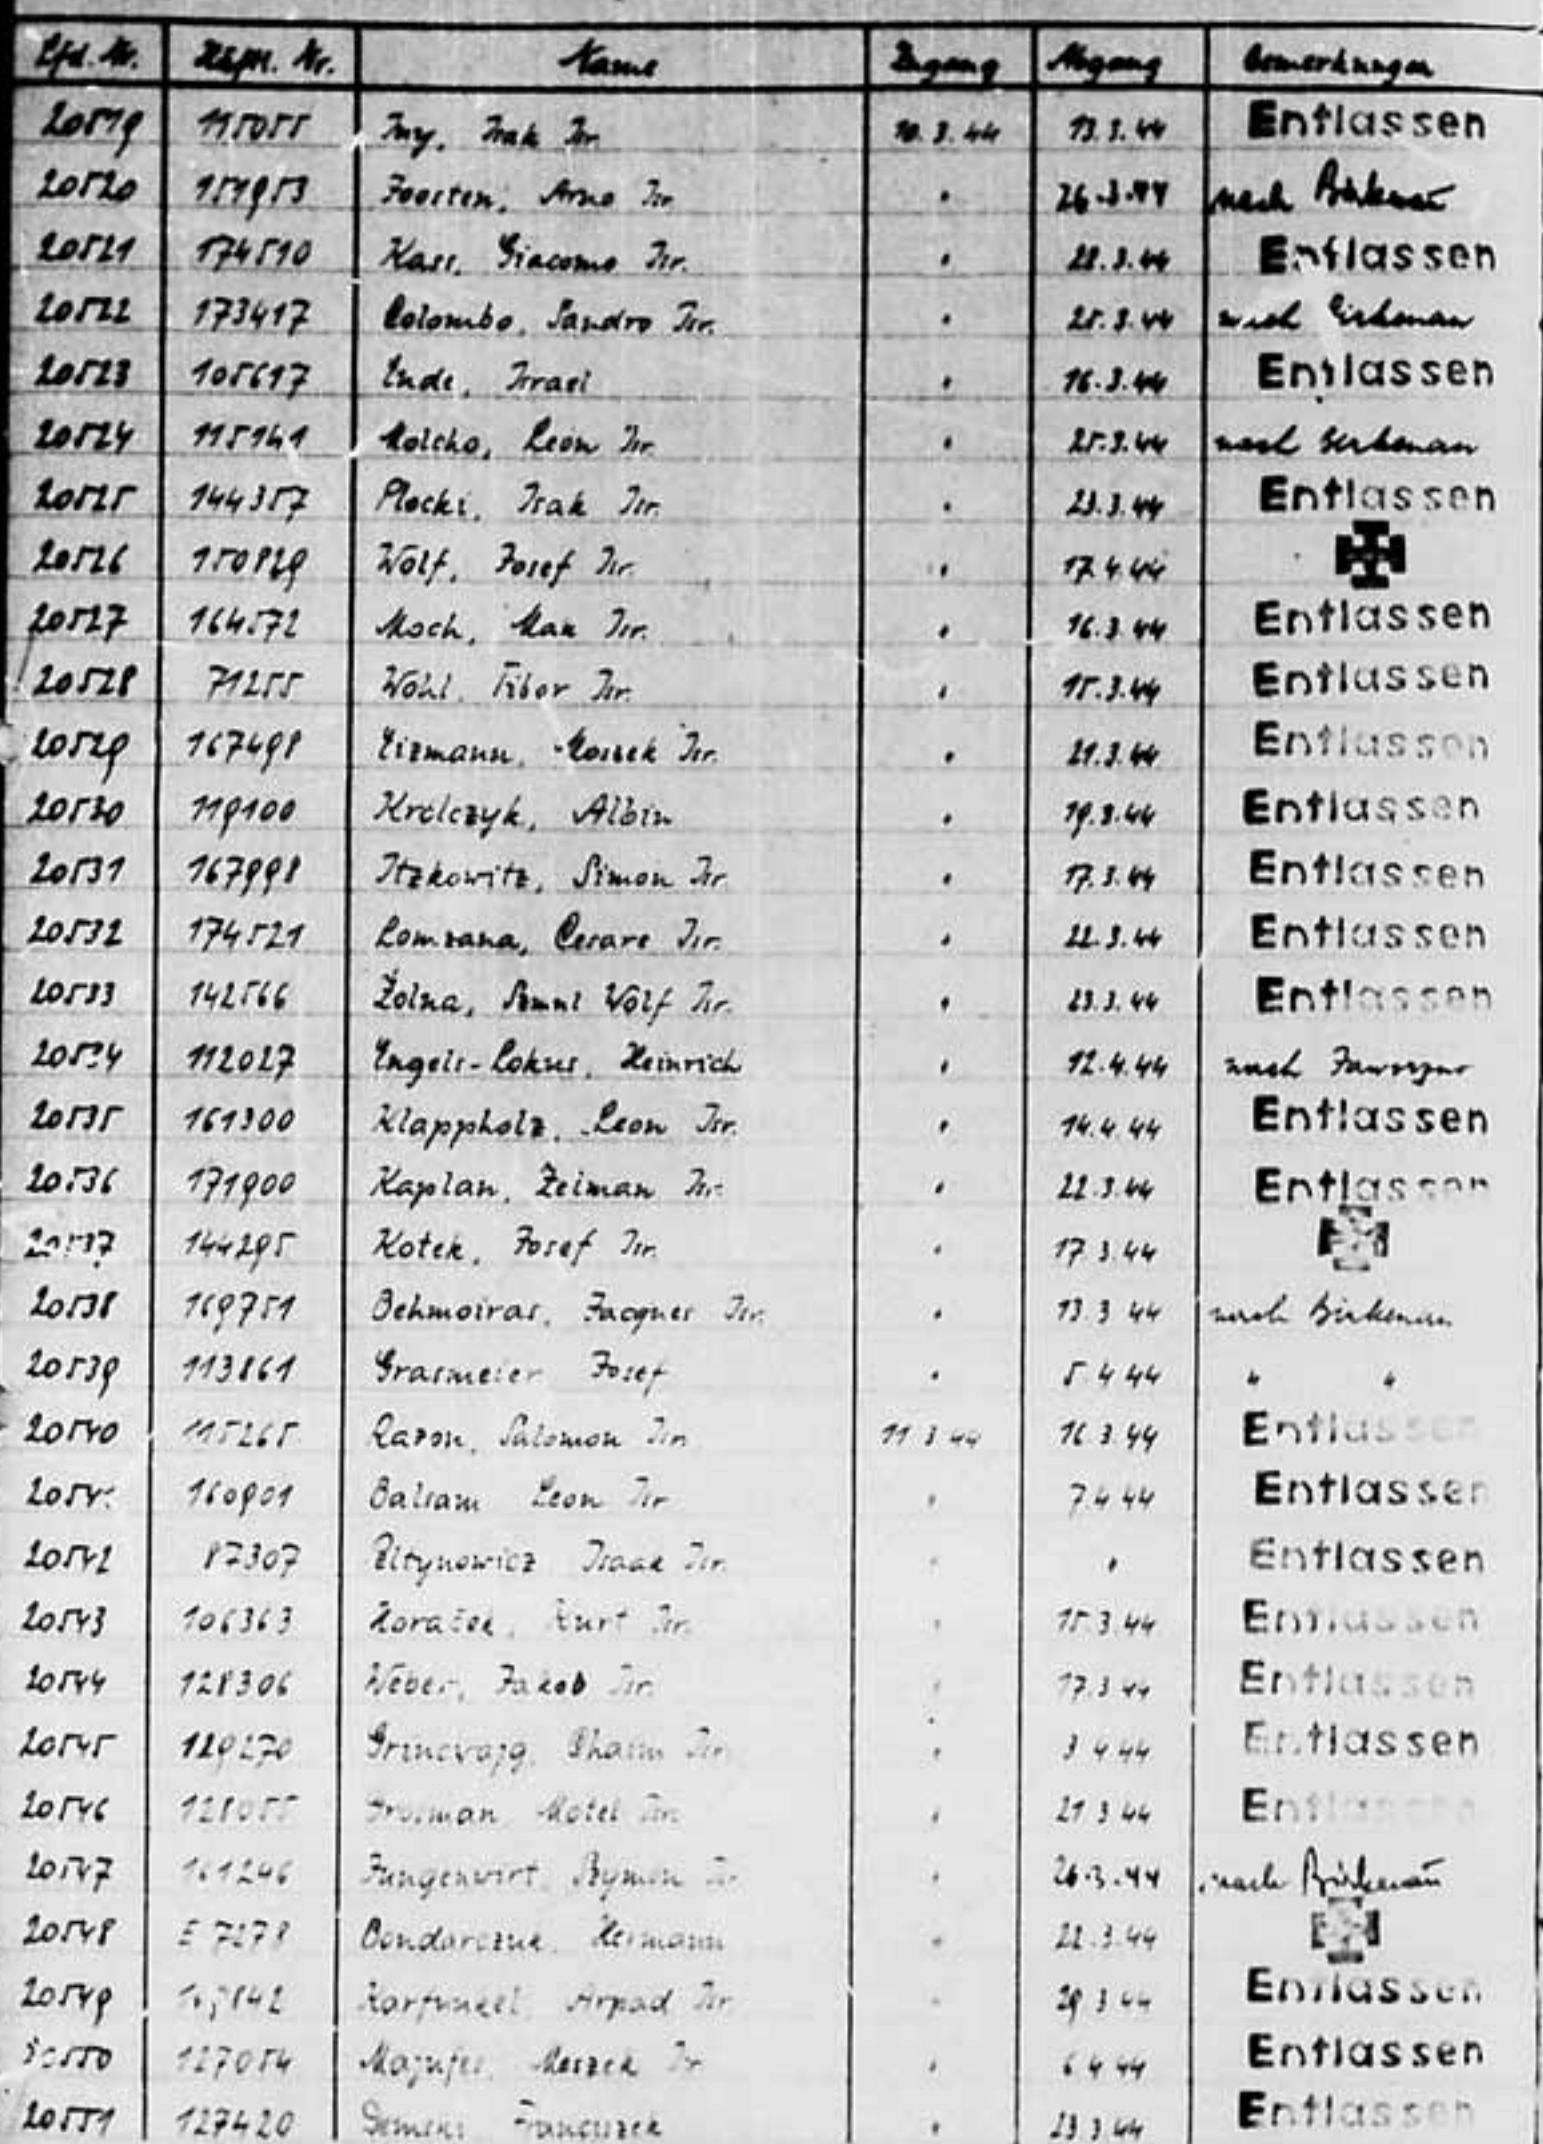 Lfd. Nr. Häftl. Nr. Name Zugang Abgang Bemerkungen
20519 115055 Isak Isr. 10.3.44 13.3.44 Entlassen
20520 151953 Joosten, Arno Isr. " 26.3.44 nach Birkenau
20521 174510 Kass, Giacomo Isr. " 28.3.44 Entlassen
20522 173417 Colombo, Sandro Isr. " 25.3.44 nach Birkenau
20523 105617 Ende, Israel " 16.3.44 Entlassen
20524 115141 Molcho, Leon Isr. " 25.3.44 nach Birkenau
20525 144357 Plocki, Isak Isr. " 23.3.44 Entlassen
20526 150829 Wolf, Josef Isr. " 17.4.44
20527 164572 Moch, Max Isr. " 16.3.44 Entlassen
20528 71255 Wohl, Tibor Isr. " 15.3.44 Entlassen
20529 167498 Eizmann, Moszek Isr. " 21.3.44 Entlassen
20530 119100 Krolczyk, Albin " 19.3.44 Entlassen
20531 167998 Itzkowitz, Simon Isr. " 17.3.44 Entlassen
20532 174521 Cesare Isr. " 22.3.44 Entlassen
20533 142566 Żolna, Szmul Wolf Isr. " 23.3.44 Entlassen
20534 112027 Heinrich " 12.4.44 nach Jaworzno
20535 161300 Klappholz, Leon Isr. " 14.4.44 Entlassen
20536 171900 Kaplan, Zelman Isr. " 22.3.44 Entlassen
20537 144295 Kotek, Josef Isr. " 17.3.44
20538 169751 Behmoiras, Jacques Isr. " 13.3.44 nach Birkenau
20539 113861 Grasmeier Josef " 5.4.44 " "
20540 115265 Razon, Salomon Isr. 11.3.44 16.3.44 Entlassen
2054 160901 Balsam Leon Isr. " 7.4.44 Entlassen
20542 87307 Isaak Isr. " " Entlassen
20543 106363 Horaček, Kurt Isr. " 15.3.44 Entlassen
20544 128306 Weber, Jakob Isr. " 17.3.44 Entlassen
20545 129270 Chaim Isr. " 3.4.44 Entlassen
20546 128055 Grosman Motel Isr. " 21.3.44 Entlassen
20547 161246 Jungenwirt, Szymon Isr. " 26.3.44 nach Birkenau
20548 E 7278 Bondarczuk, Hermann " 22.3.44
20549 Karfunkel, Arpad Isr. " 29.3.44 Entlassen
20550 127054 Moszek Isr. " 6.4.44 Entlassen
20551 127420 Franciszek " 23.3.44 Entlassen